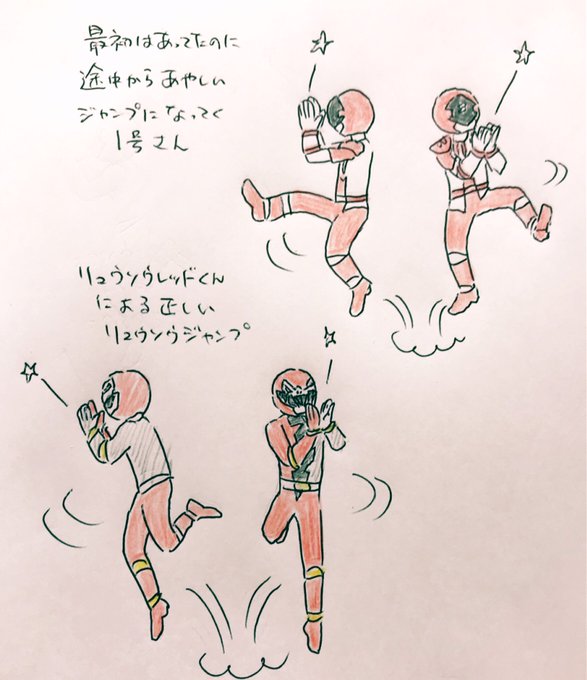 最初はあってたのに
途中からあやしい
ジャンプになってく
1号さん
リュウソウレッドくん
による正しい
リュウソウジャンプ